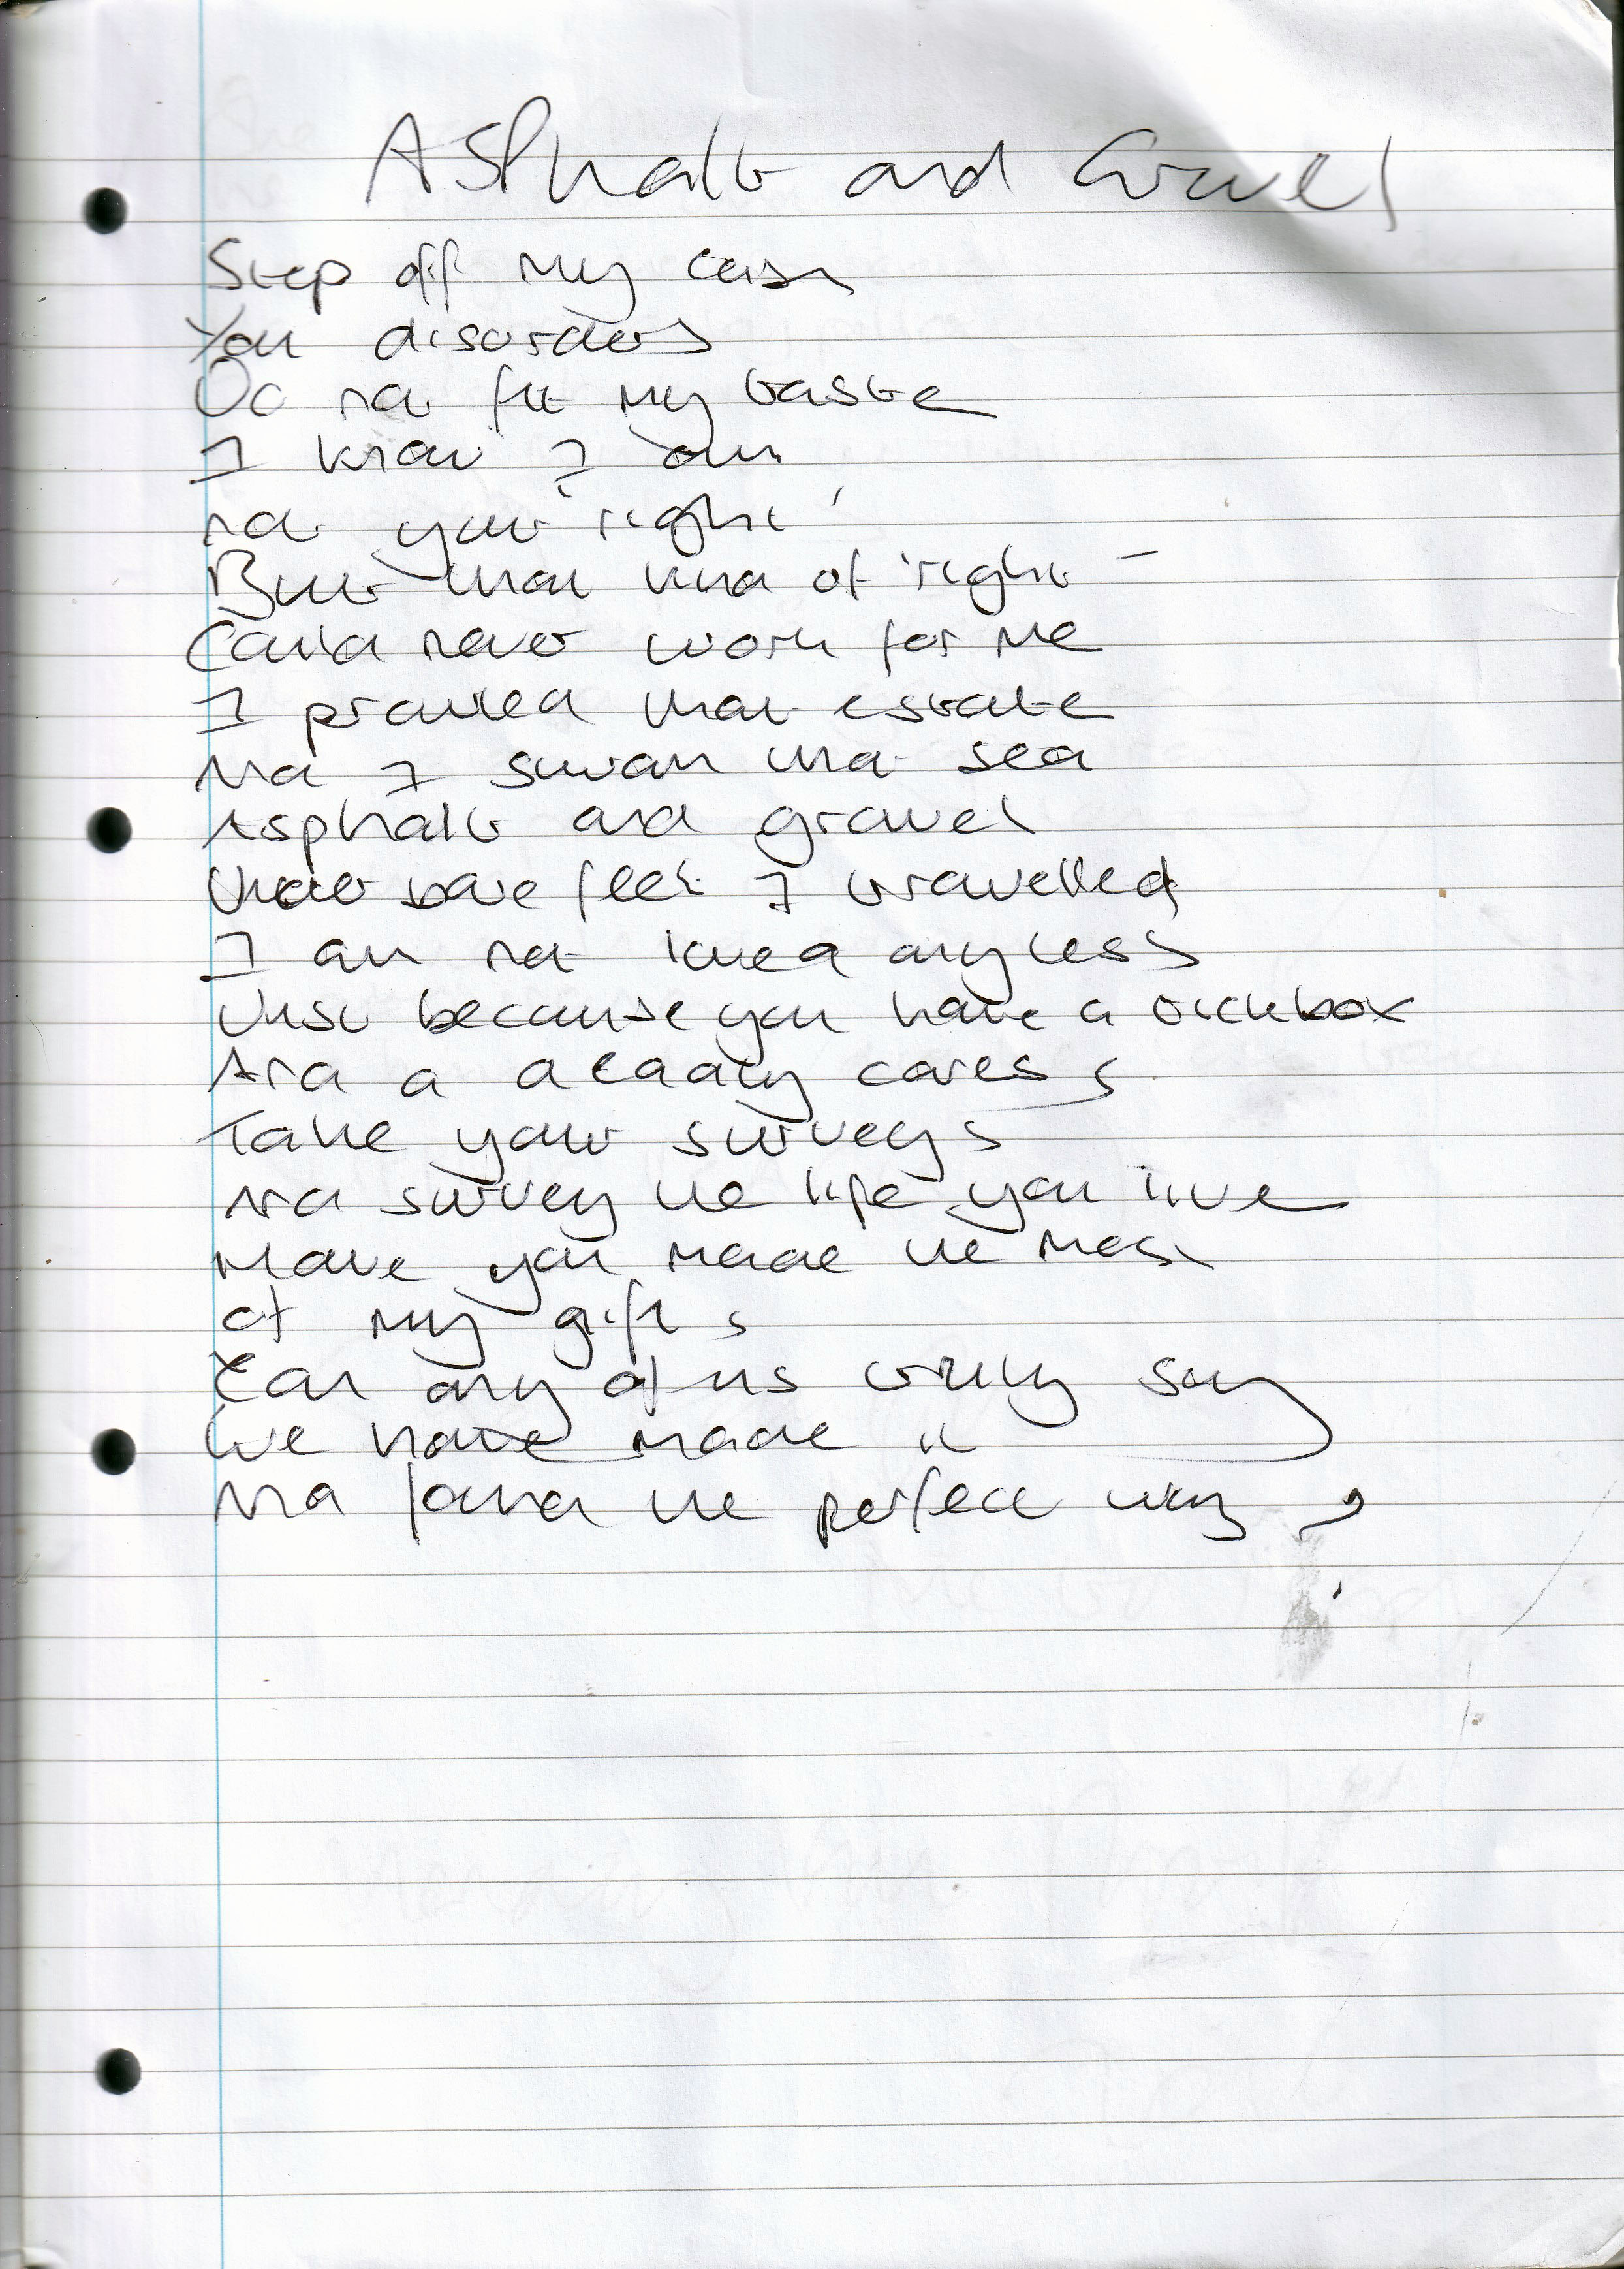 Asphalt and Gravel
Step off my case
Your disorders
Do not fit my taste
I know I am
not your 'right'
But that kind of 'right'
Could never work for me
I prowled that estate
And I swam that sea
Asphalt and gravel
Under bare feet I travelled
I am not loved any less
Just because you have a tickbox
And a deadly caress
Take your surveys
And survey the life you live
Have you made the most
of my gifts
Can any of us truly say
We have made it
And found the perfect way?